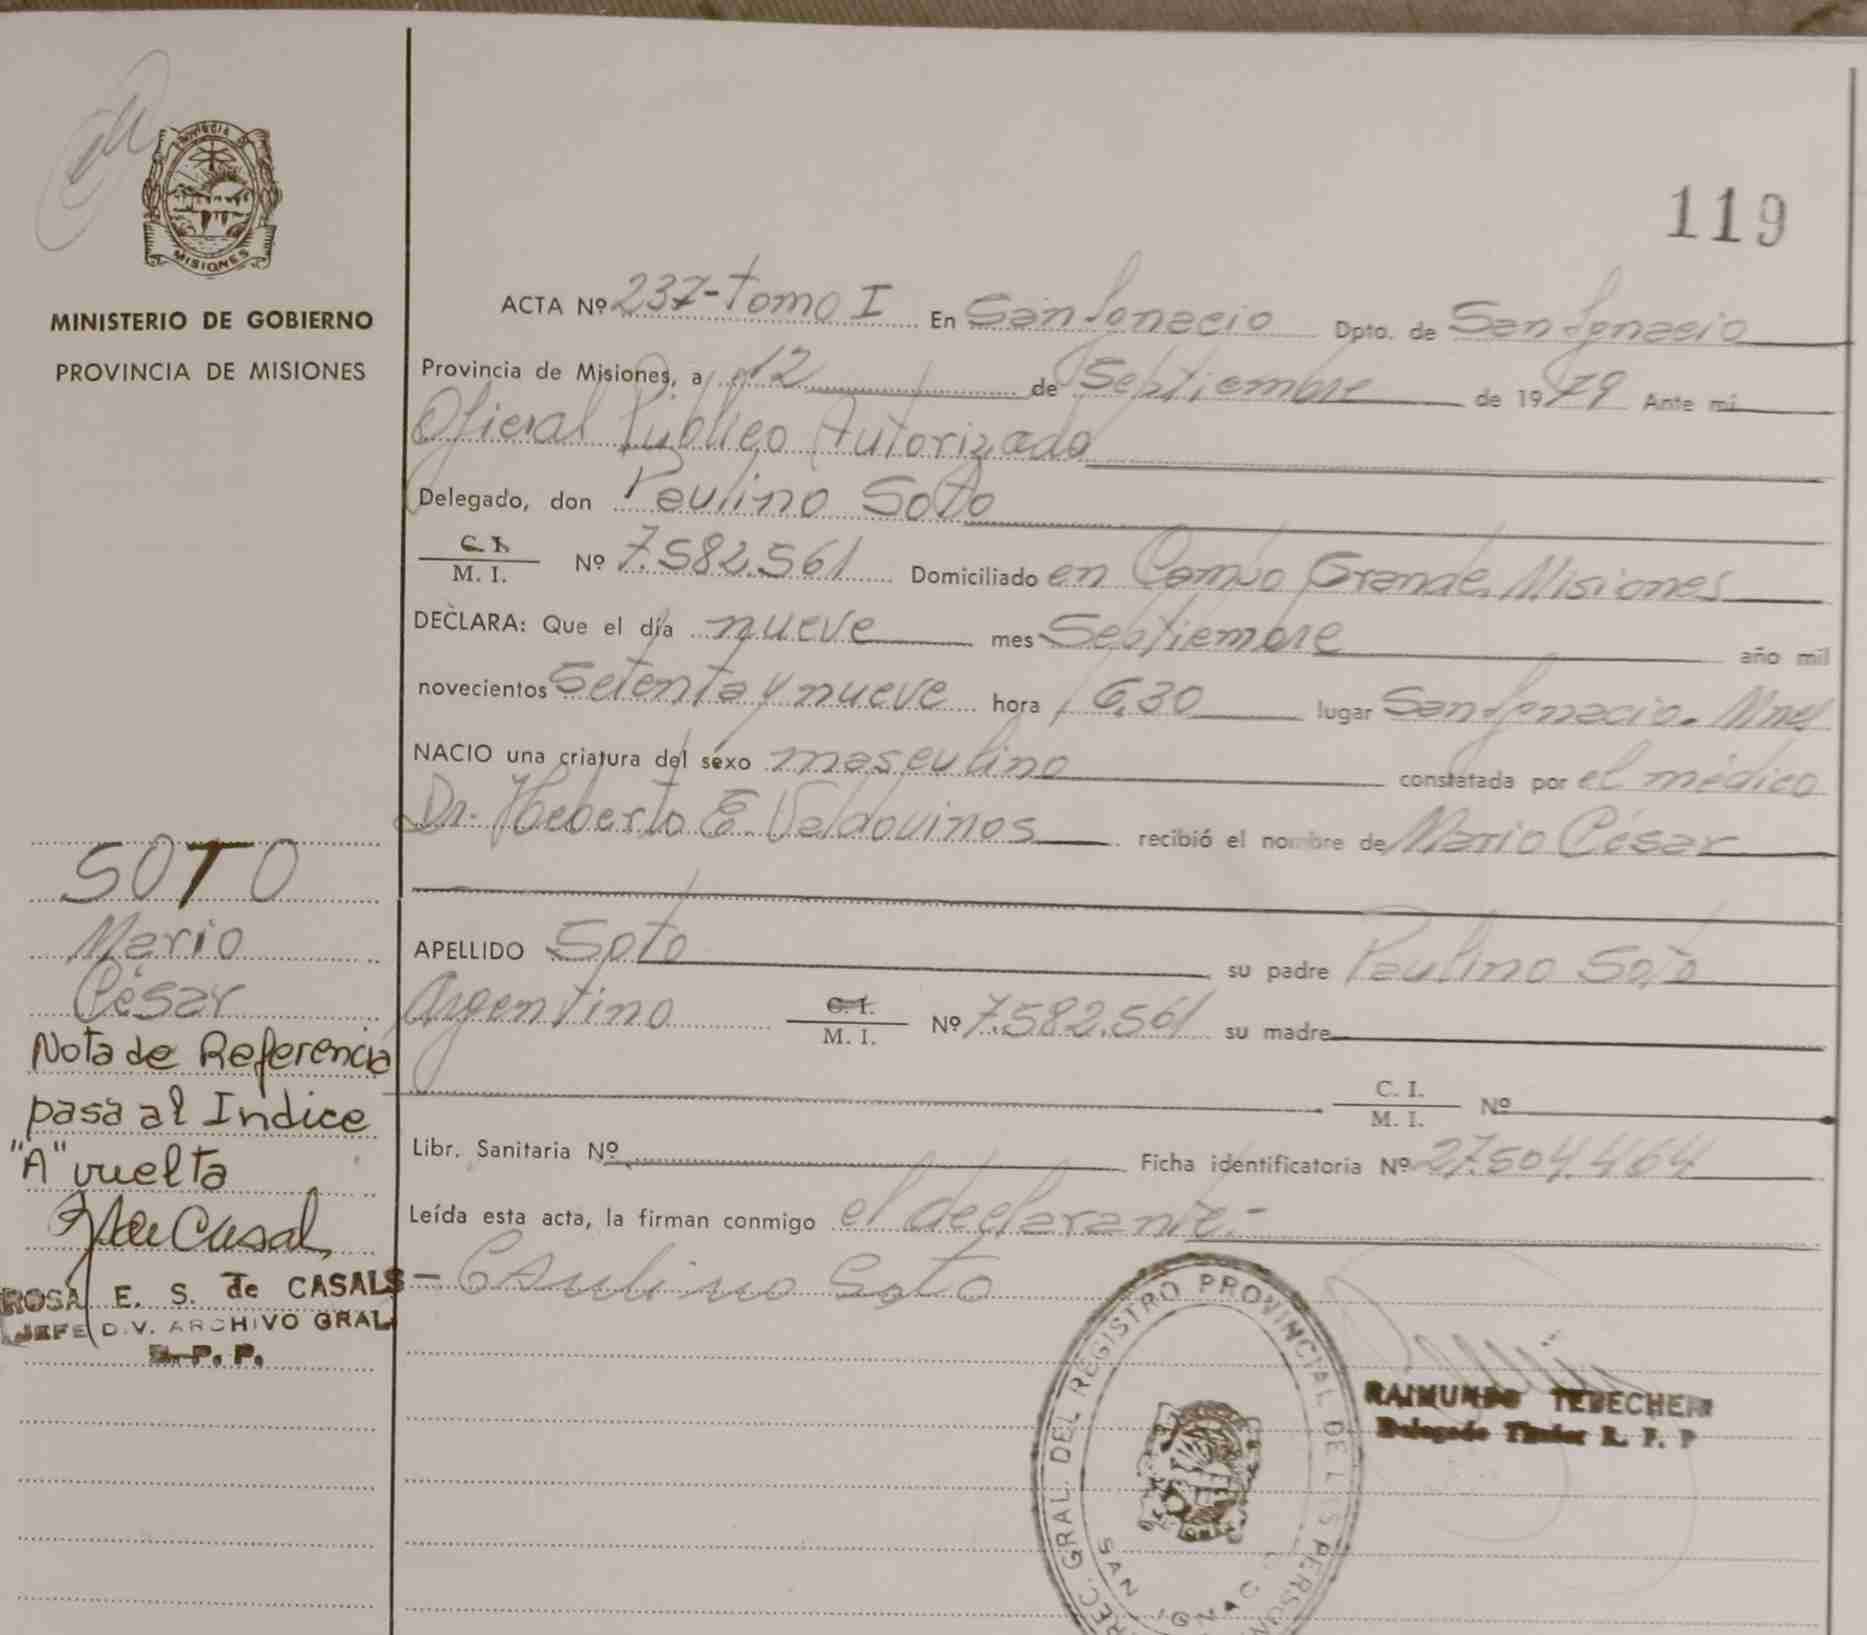 PROVINCIA DE
MISIONES
MINISTERIO DE GOBIERNO
PROVINCIA DE MISIONES
119
ACTA Nº 237-Tomo I En San Ignacio Dpto. de San Ignacio
Provincia de Misiones, a 12 de Septiembre de 1979 Ante mi
Oficial Público Autorizado
Delegado, don Paulino Soto
C. I.
M. I. Nº 7.582.561 Domiciliado en Campo Grande, Misiones
DECLARA: Que el día nueve mes Septiembre año mil
novecientos Setenta y nueve hora 6,30 lugar San Ignacio. Mnes
NACIO una criatura del sexo masculino constatada por el médico
Dr. Heberto E. Valdovinos recibió el nombre de Mario César
APELLIDO Soto su padre Paulino Soto
Argentino C. I.
M. I. Nº 7.582.561 su madre
C. I.
M. I. Nº
Libr. Sanitaria Nº Ficha identificatoria Nº 27.504.464
Leída esta acta, la firman conmigo el declarante.-
Paulino Soto
SOTO
Mario
César
Nota de Referencia
pasa al Indice
"A" vuelta
ROSA E. S. de CASALS
JEFE DIV. ARCHIVO GRAL
R. P. P.
RAIMUNDO TEBECHERI
Delegado Titular R. P. P
DIREC. GRAL. DEL REGISTRO PROVINCIAL DE LAS PERSONAS
SAN IGNACIO